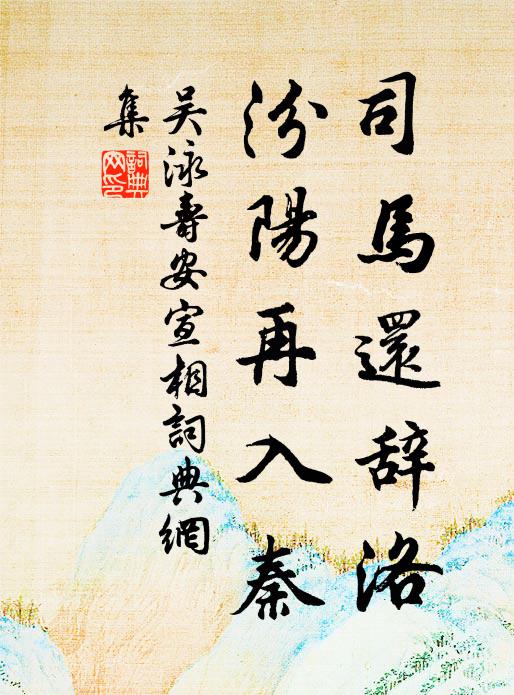 司馬還辞洛
汾陽再入秦
吴泳壽安宣相詞典網
集
詞典网印